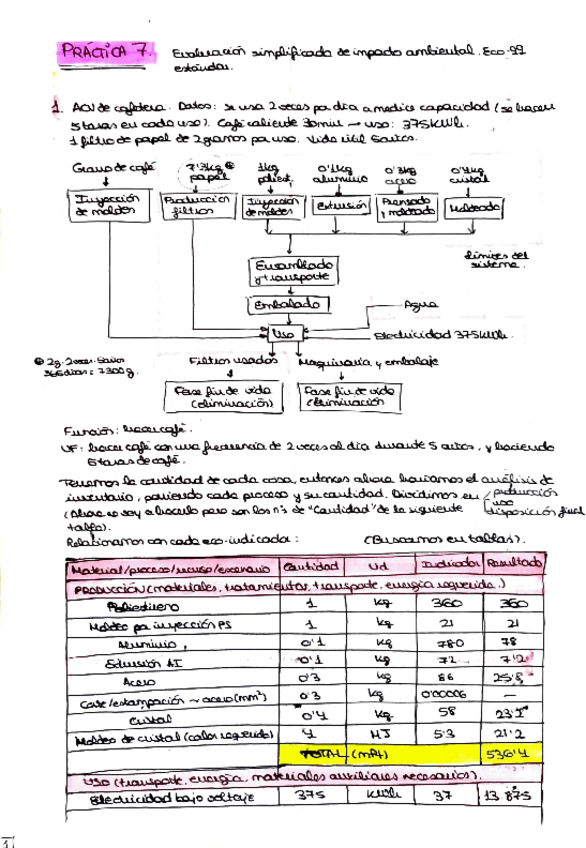 PRÁCTICA 7. Evaluación simplificada de impacto ambiental. Eco-99
estándar.
1. ACV de cafetera. Datos: se usa 2 veces por día a media capacidad (se hacen
5 tazas en cada uso). Café caliente 30min → uso: 375KWh.
1 filtro de papel de 2 gramos por uso. Vida útil 5 años.
Grano de café 7'3kg papel 1kg poliest. 0'1kg aluminio 0'3kg acero 0'4kg cristal
Inyección de moldes Producción filtros Inyección de moldes Extrusión Prensado y moldeado Moldeado
límites del
sistema.
Ensamblado
y transporte
Embalado
Agua
Uso
Electricidad 375KWh.
2g. 2veces. 5años
365días = 7300g.
Filtros usados Maquinaria y embalaje
Fase fin de vida (eliminación) Fase fin de vida (eliminación)
Función: hacer café.
UF: hacer café con una frecuencia de 2 veces al día durante 5 años, y haciendo
5 tazas de café.
Tenemos la cantidad de cada cosa, entonces ahora hacemos el análisis de
inventario, poniendo cada proceso y su cantidad. Dividimos en producción
uso
disposición final
(Ahora no voy a hacerlo pero son los nºs de "Cantidad" de la siguiente
tabla).
Relacionamos con cada eco-indicador: (Buscamos en tablas).
Material/proceso/recurso/escenario Cantidad Ud Indicador Resultado
PRODUCCIÓN (materiales, tratamientos, transporte, energía requerida.)
Poliestireno 1 Kg 360 360
Moldeo por inyección PS 1 kg 21 21
Aluminio 0'1 Kg 780 78
Extrusión Al 0'1 Kg 72 7'2
Acero 0'3 Kg 86 25'8
Corte/estampación ~ acero (mm²) 0'3 kg 0'00006 —
Cristal 0'4 Kg 58 23'2
Moldeo de cristal (calor requerido) 4 MJ 5'3 21'2
TOTAL (mPt) 536'4
USO (transporte, energía, materiales auxiliares necesarios).
Electricidad bajo voltaje 375 KWh 37 13.875